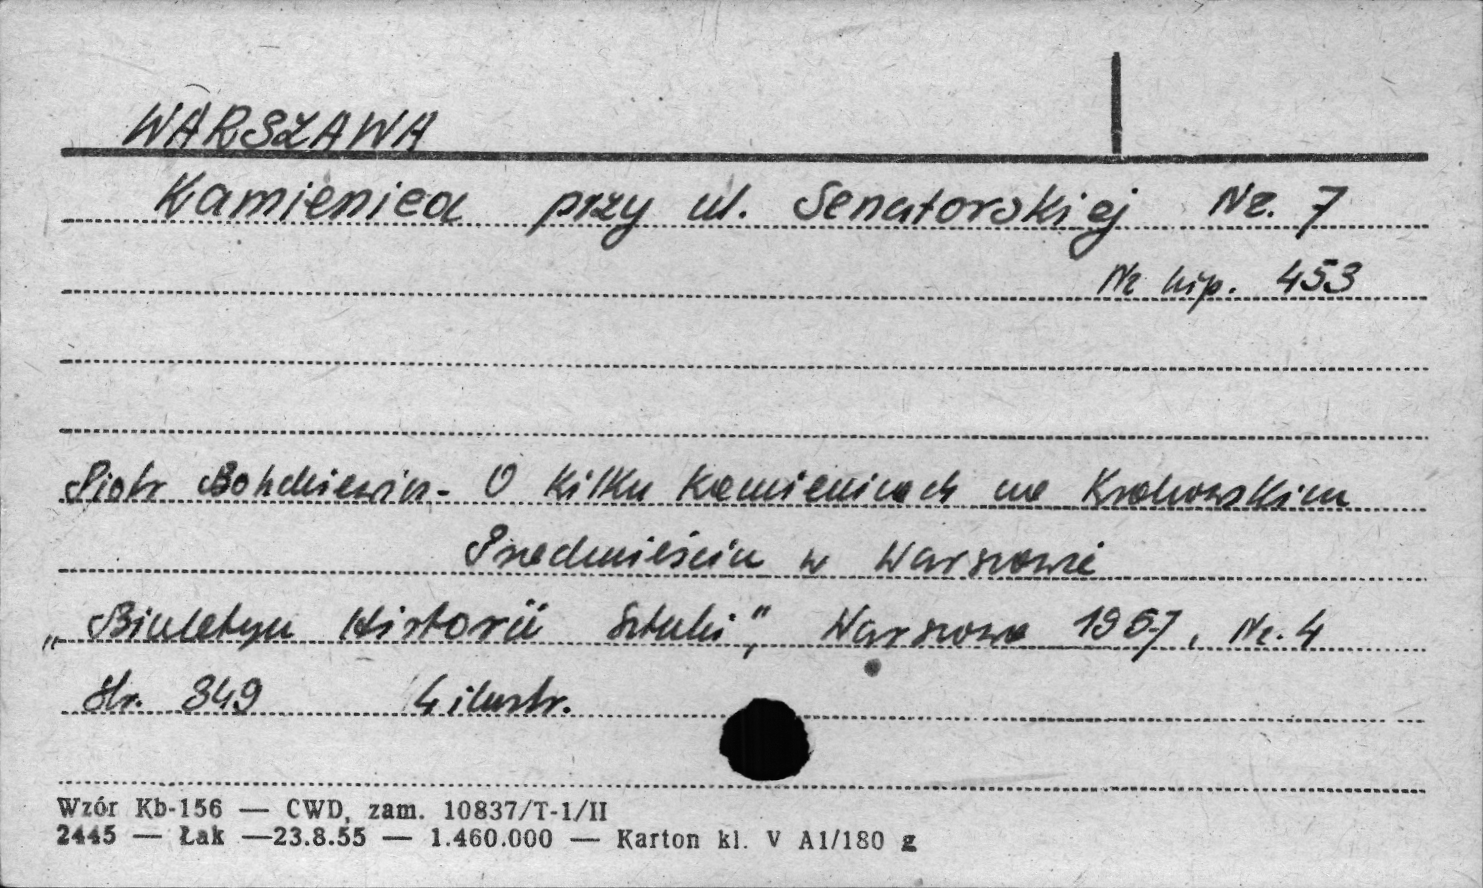 WARSZAWA
Kamienica przy ul. Senatorskiej Nr. 7
Nr hip. 453
Piotr Bohdziewicz - O kilku kamienicach na Krakowskim
Przedmieściu w Warszawie
„Biuletyn Historii Sztuki", Warszawa 1957, Nr. 4
Str. 349 4 ilustr.
Wzór Kb-156 — CWD, zam. 10837/T-1/II
2445 — Łak —23.8.55 — 1.460.000 — Karton kl. V A1/180 g